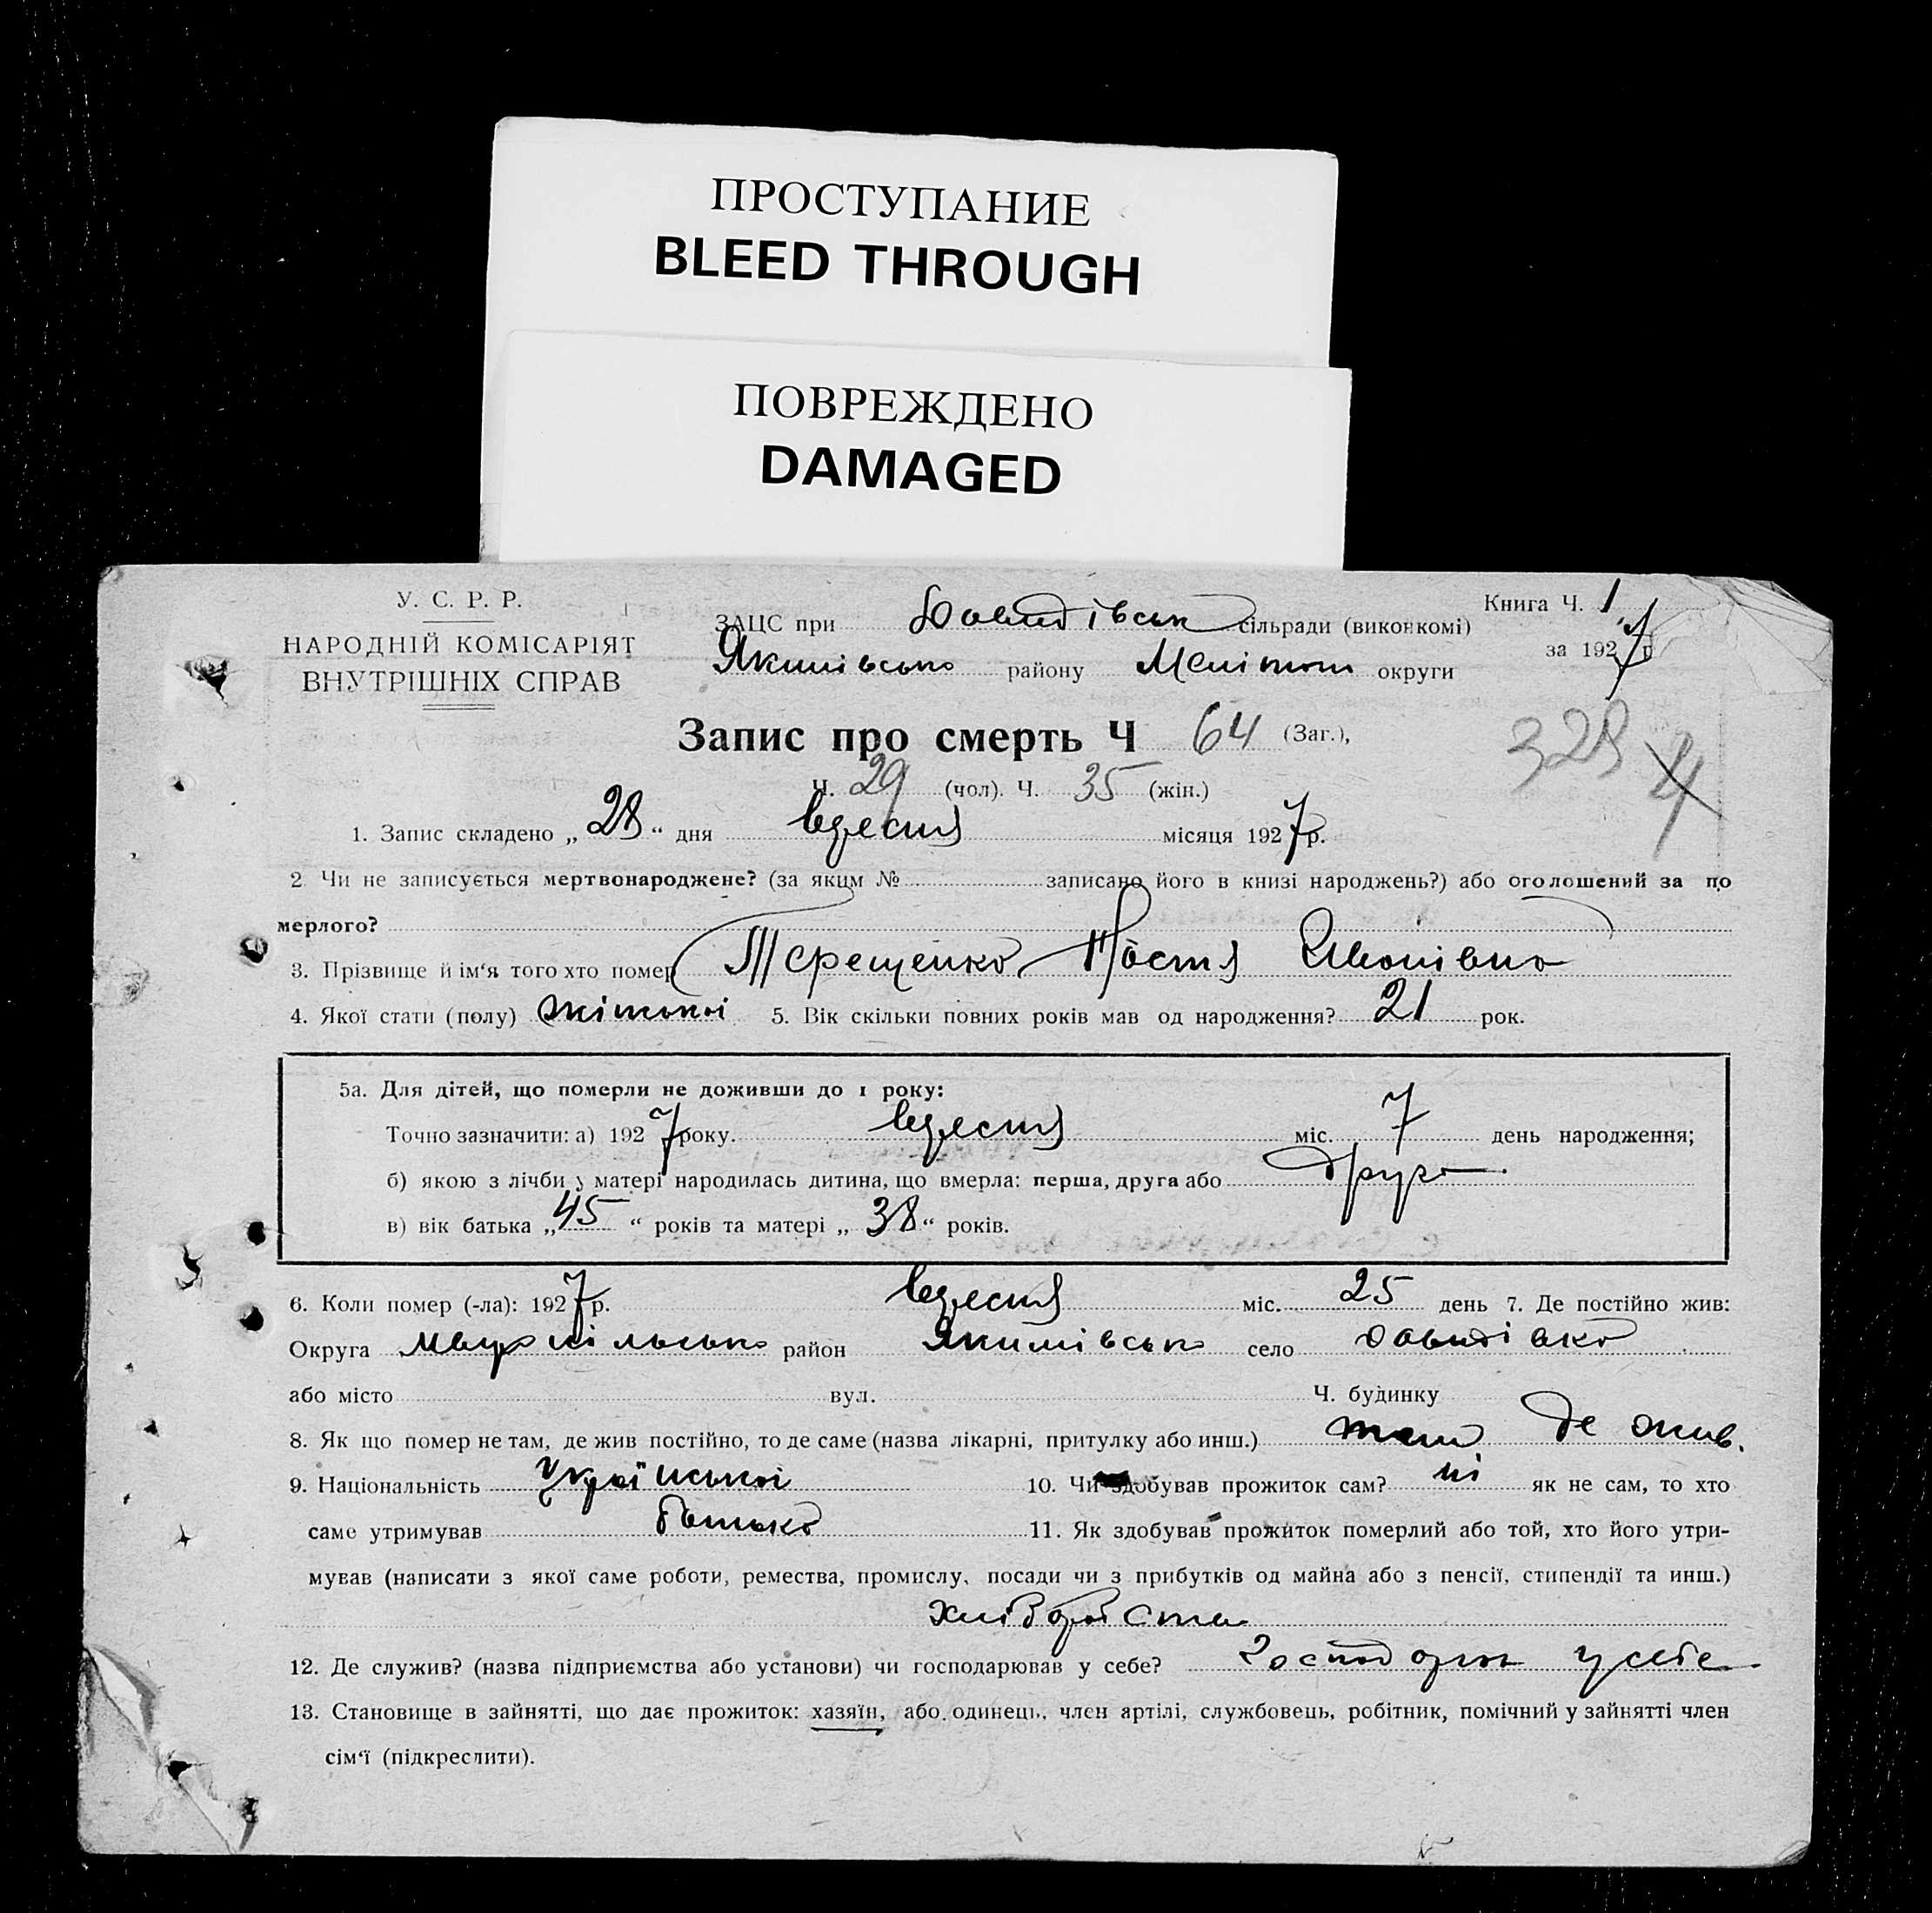 ПРОСТУПАНИЕ
BLEED THROUGH
ПОВРЕЖДЕНО
DAMAGED
У. С. Р. Р.
НАРОДНІЙ КОМІСАРІЯТ
ВНУТРІШНІХ СПРАВ
Книга Ч. 1
за 1927 г
ЗАЦС при Давидівськ сільради (виконкомі)
Якимівсько району Мелітоп округи
Запис про смерть Ч 64 (Заг.),
328 4
Ч. 29 (чол). Ч. 35 (жін.)
1. Запис складено „ 28 “ дня вересня місяця 1927 р.
2 Чи не записується мертвонароджене? (за яким № записано його в книзі народжень?) або оголошений за по
мерлого?
3. Прізвище й ім‘я того хто помер Терещенко, Настя Іванівна
4. Якої стати (полу) жіночої 5. Вік скільки повних років мав од народження? 21 рок.
5а. Для дітей, що померли не доживши до 1 року:
Точно зазначити: а) 1927 року. вересня міс. 7 день народження;
б) якою з лічби у матері народилась дитина, що вмерла: перша, друга або друга
в) вік батька „ 45 “ років та матері „ 38 “ років.
6. Коли помер (-ла): 1927 р. вересня міс. 25 день 7. Де постійно жив:
Округа район Якимівсько село Давидівка
або місто вул. Ч. будинку
8. Як що помер не там, де жив постійно, то де саме (назва лікарні, притулку або инш.) там де жив.
9. Національність Української 10. Чи здобував прожиток сам? ні як не сам, то хто
саме утримував батько 11. Як здобував прожиток померлий або той, хто його утри-
мував (написати з якої саме роботи, ремества, промислу, посади чи з прибутків од майна або з пенсії, стипендії та инш.)
12. Де служив? (назва підприємства або установи) чи господарював у себе? господарює у себе
13. Становище в зайнятті, що дає прожиток: хазяїн, або одинець, член артілі, службовець, робітник, помічний у зайнятті член
сім‘ї (підкреслити).